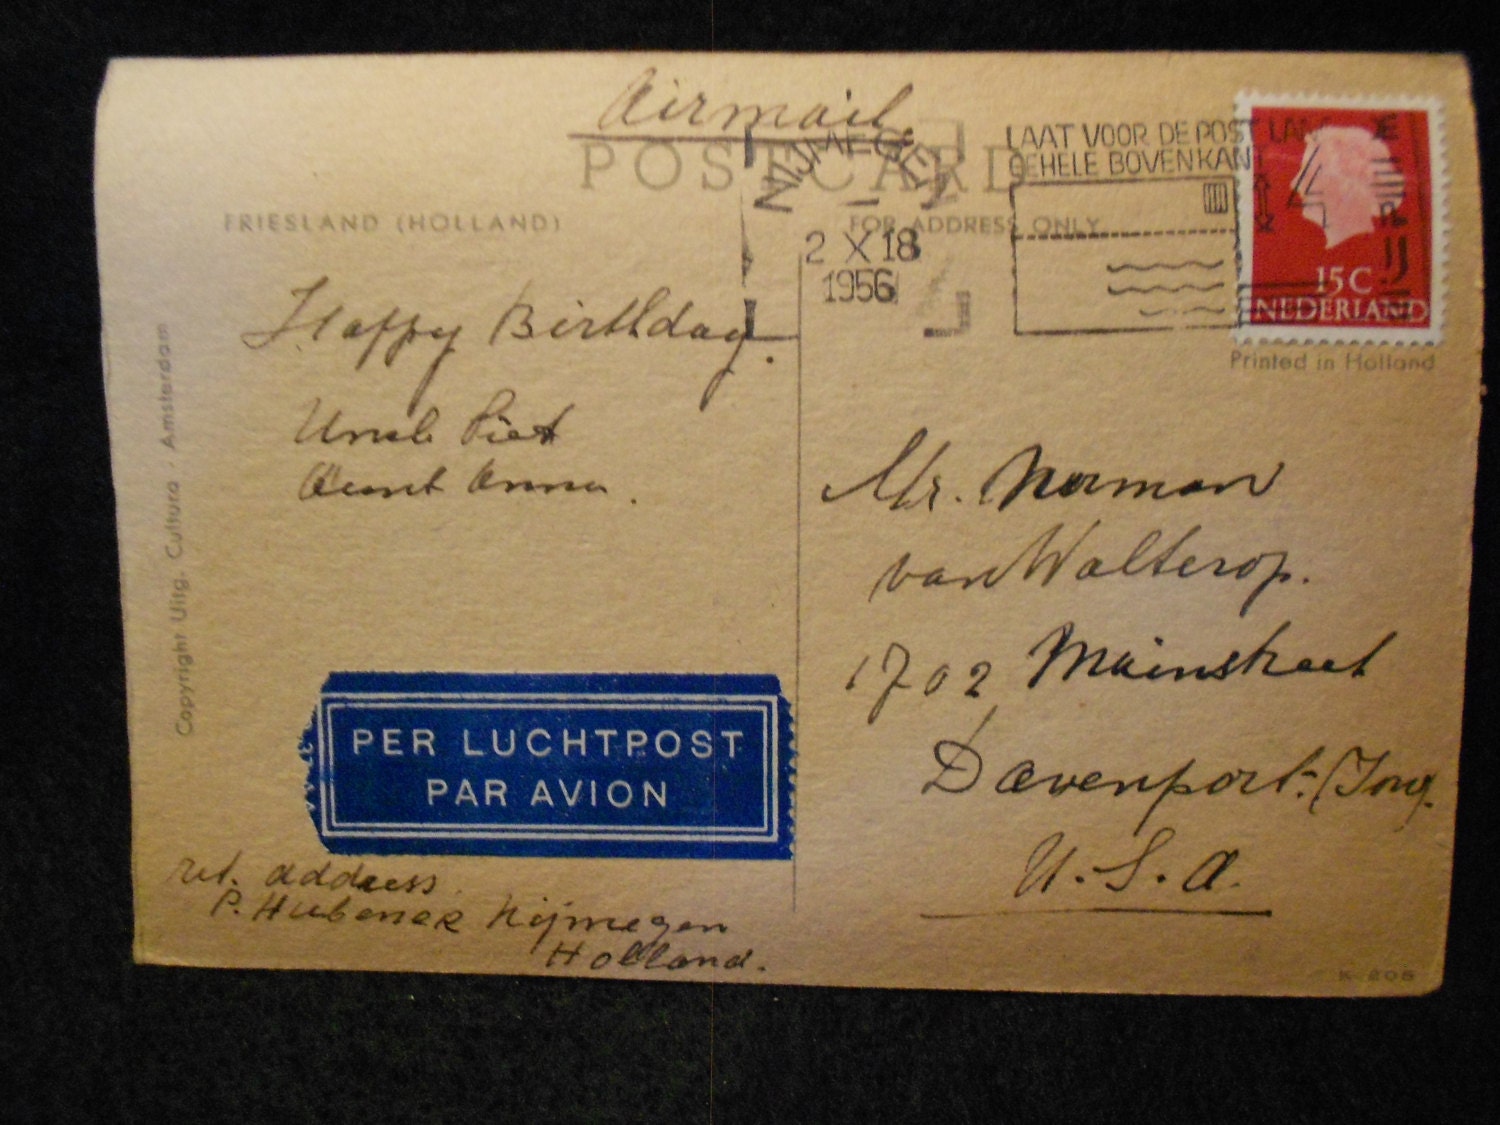 Airmail.
POSTCARD
FRIESLAND (HOLLAND)
FOR ADDRESS ONLY
NIJMEGEN
2 X 18
1956
LAAT VOOR DE POST LANGS DE
GEHELE BOVENKANT
VRIJ
15 C
NEDERLAND
Printed in Holland
Happy Birthday.
Uncle Piet
Aunt Anna.
Copyright Uitg. Cultura · Amsterdam
Mr. Norman
van Walterop.
1702 Mainstreet
Davenport-
U.S.A.
PER LUCHTPOST
PAR AVION
ret. address
P. Hubener Nijmegen
Holland.
K 208